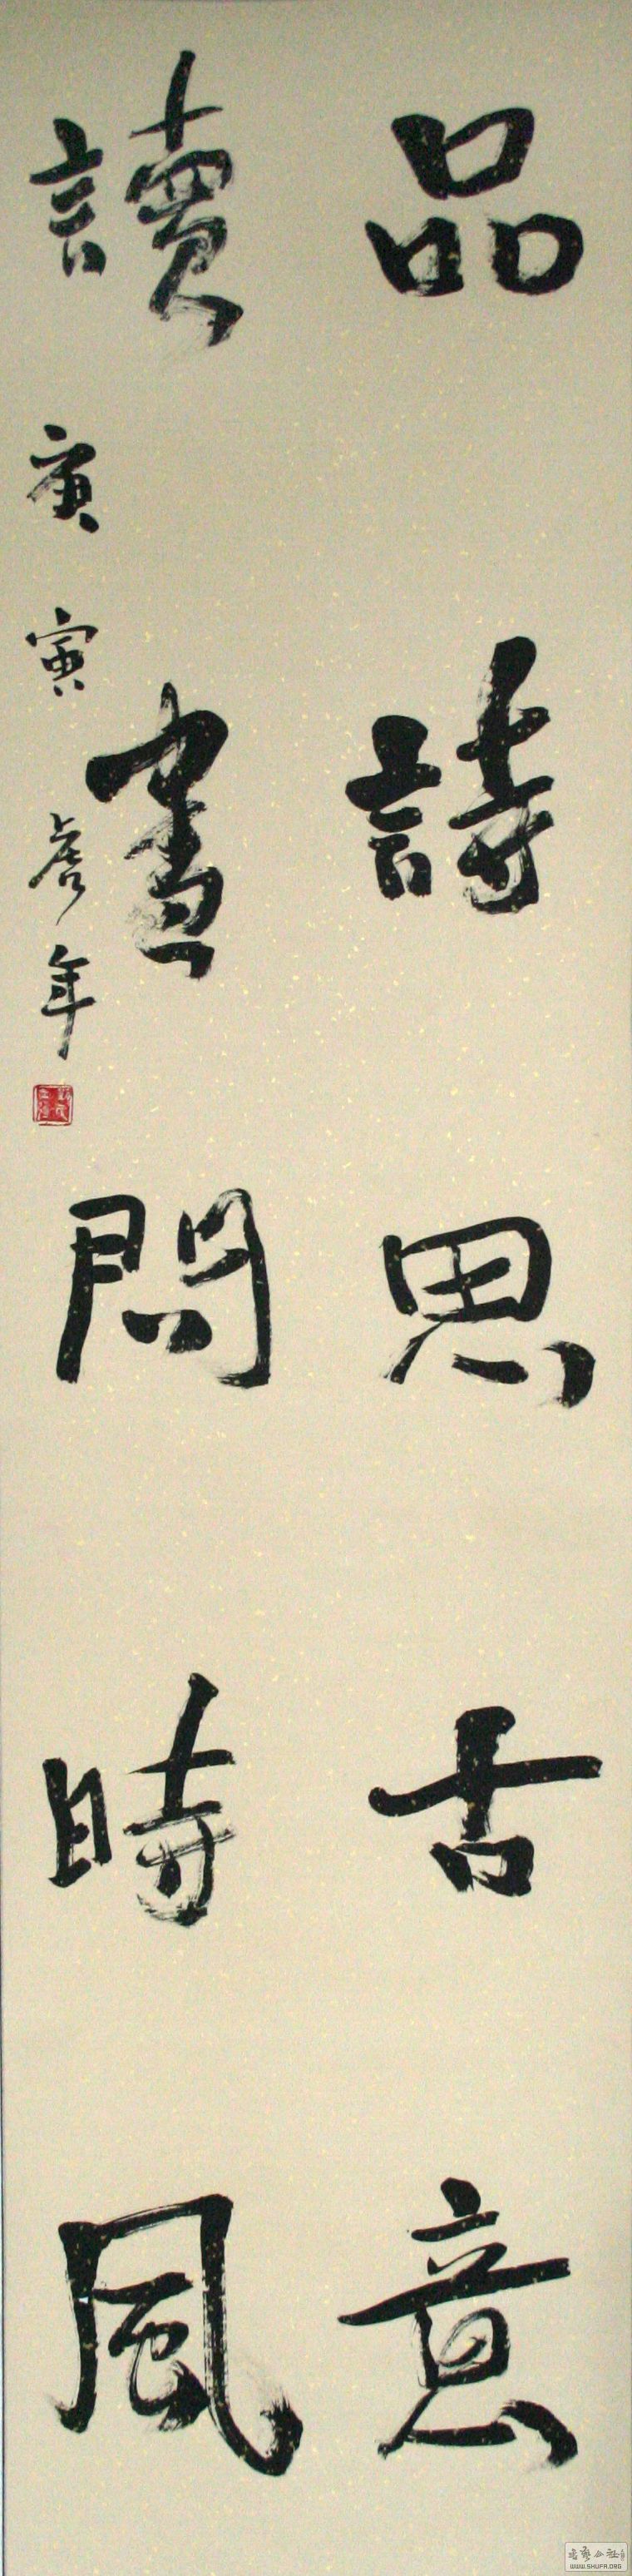 品詩思古意
讀畫問時風
庚寅 彥年
WWW.SHUFA.ORG